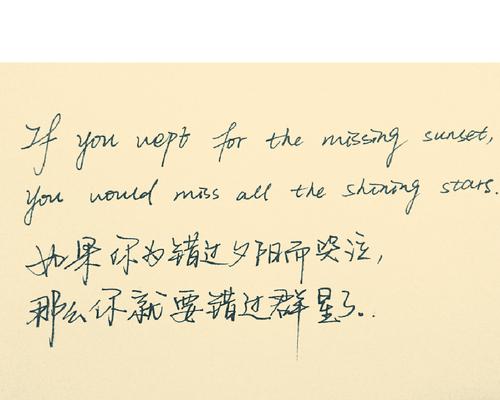 If you wept for the missing sunset,
you would miss all the shining stars.
如果你为错过夕阳而哭泣,
那么你就要错过群星了..